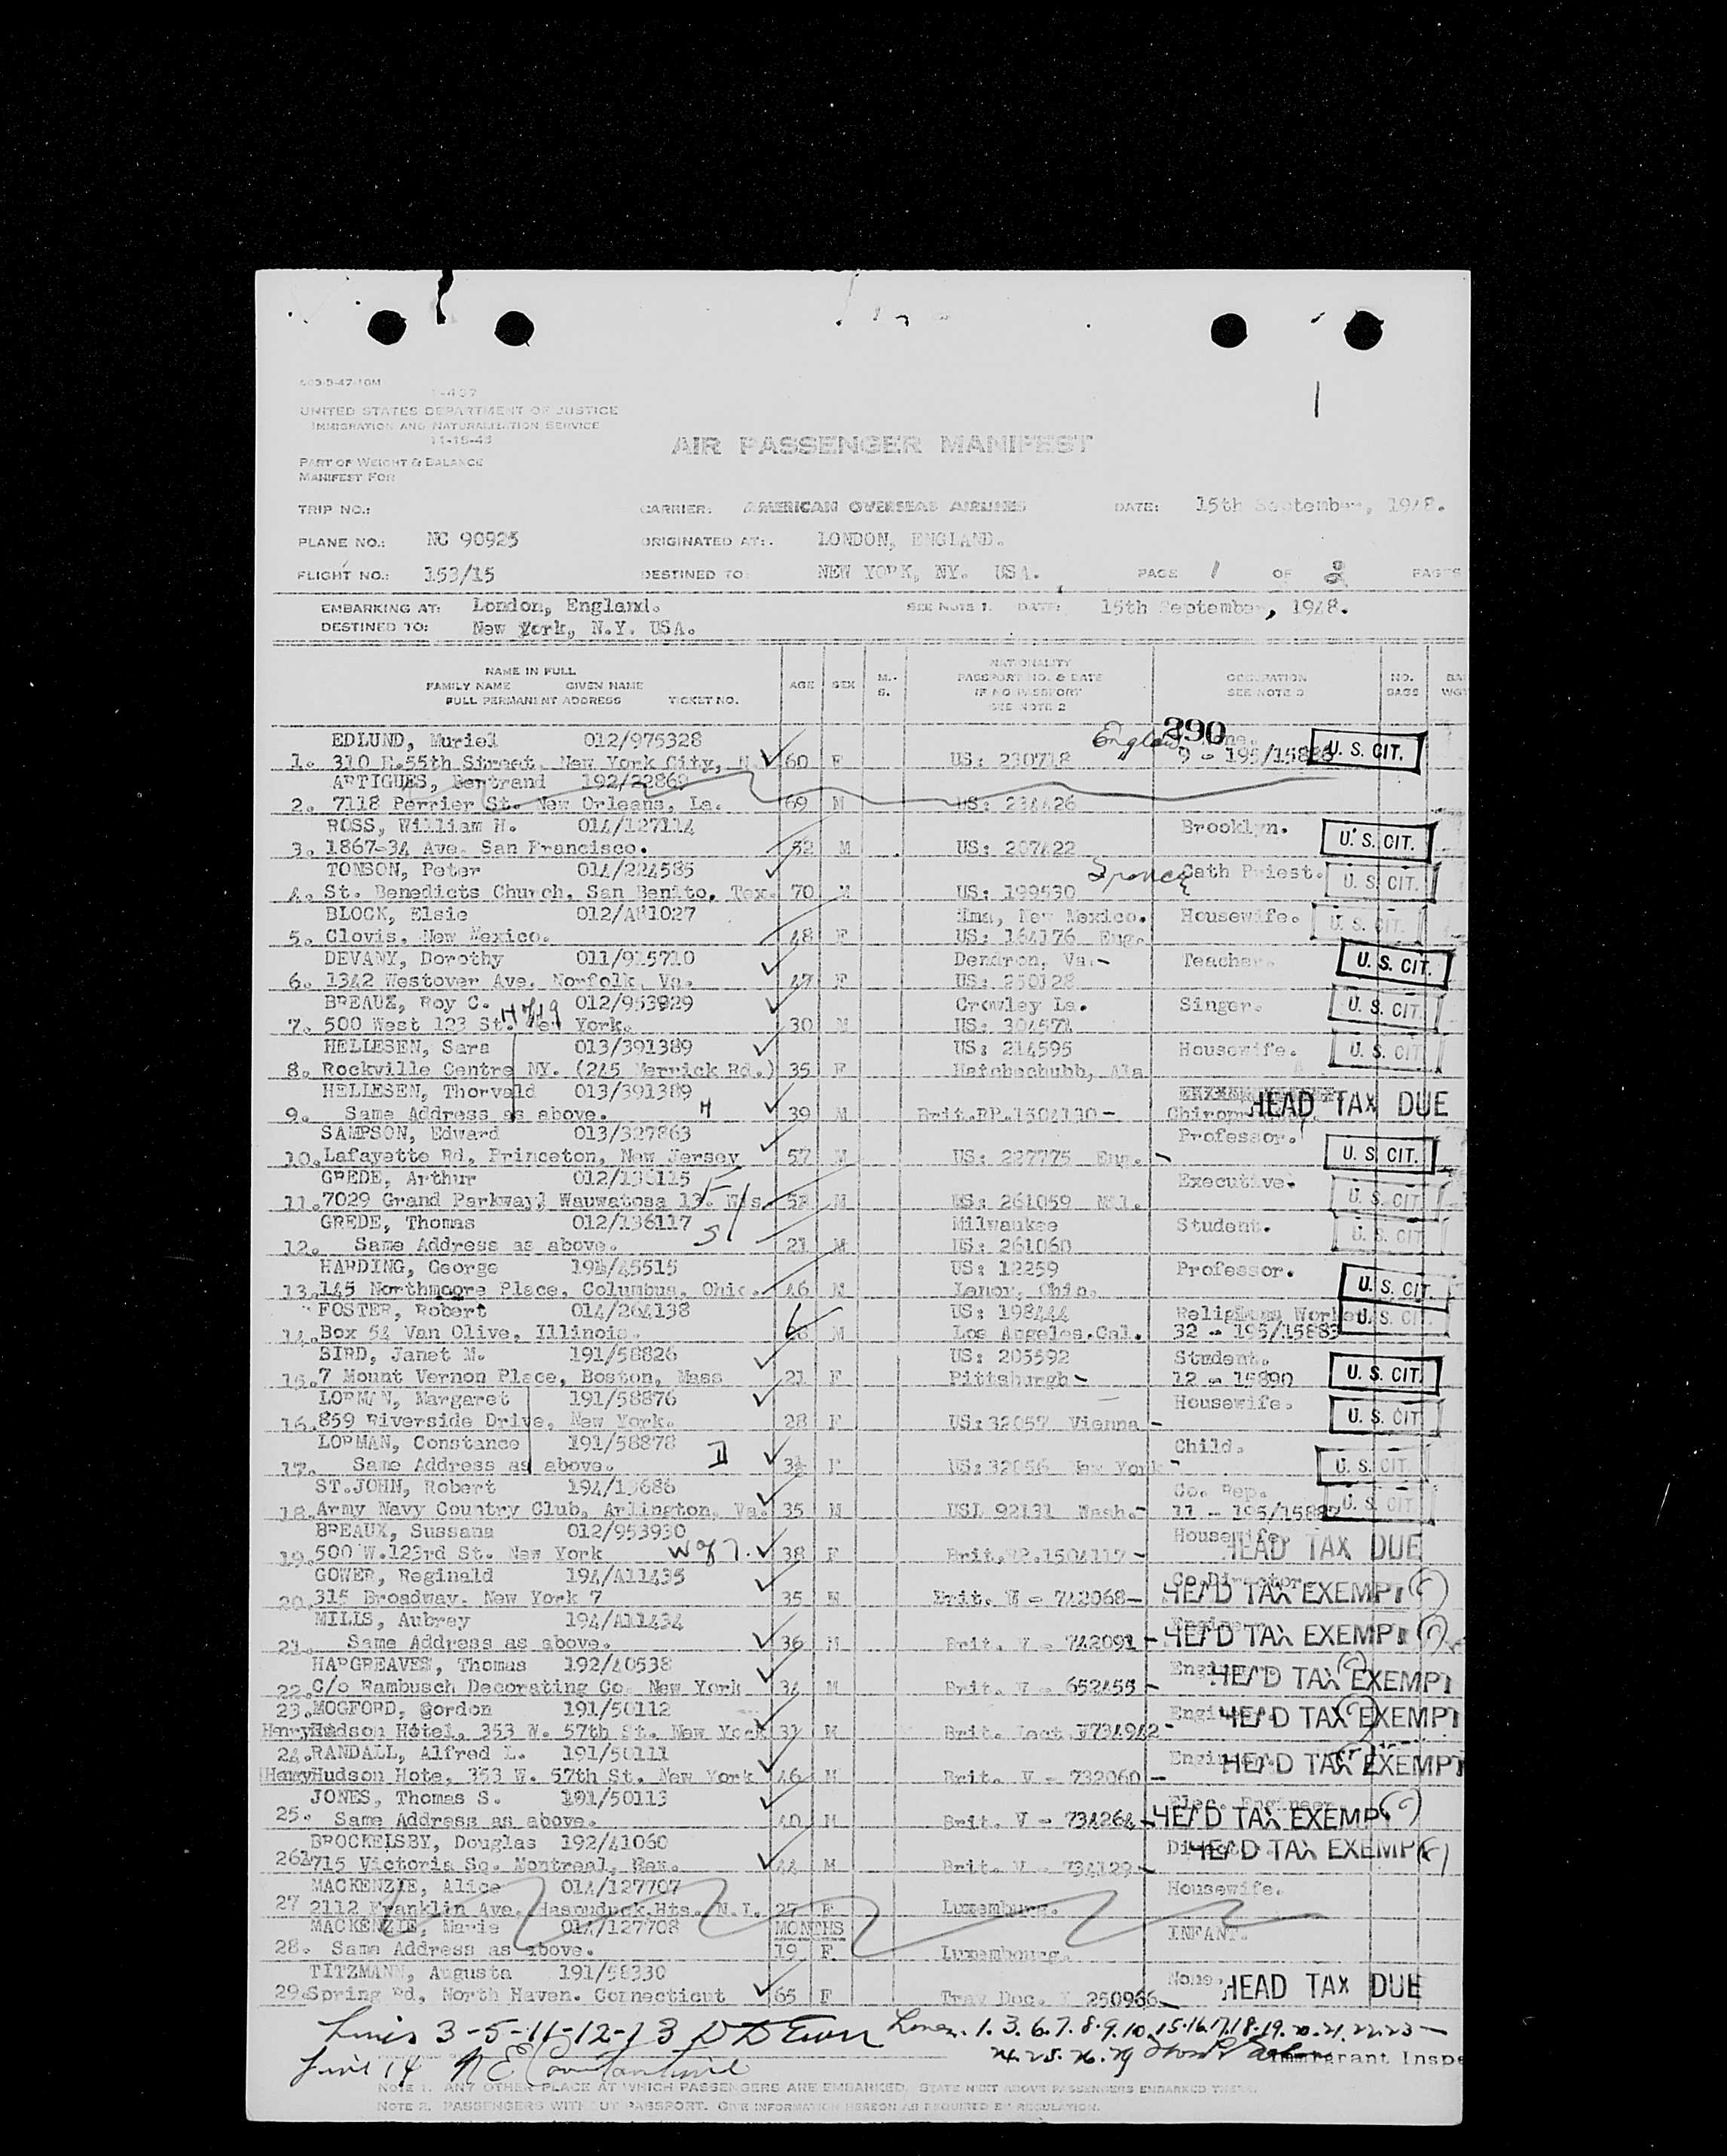 503-5-47-10M
I-457
UNITED STATES DEPARTMENT OF JUSTICE
IMMIGRATION AND NATURALIZATION SERVICE
11-15-43
AIR PASSENGER MANIFEST
PART OF WEIGHT & BALANCE
MANIFEST FOR
TRIP NO.: CARRIER: AMERICAN OVERSEAS AIRLINES DATE: 15th September, 1948.
PLANE NO.: NC 90925 ORIGINATED AT: LONDON, ENGLAND.
FLIGHT NO.: 153/15 DESTINED TO: NEW YORK, NY. USA. PAGE 1 OF 2 PAGES
EMBARKING AT: London, England. SEE NOTE 1. DATE: 15th September, 1948.
DESTINED TO: New York, N.Y. USA.
NAME IN FULL
FAMILY NAME GIVEN NAME
FULL PERMANENT ADDRESS TICKET NO.
AGE SEX M.-S.
NATIONALITY
PASSPORT NO. & DATE
IF NO PASSPORT
SEE NOTE 2
OCCUPATION
SEE NOTE 3
NO. BAGS
290
EDLUND, Muriel 012/975328 England None.
1. 310 E.55th Street, New York City, N. 60 F US: 230718 9 - 195/15886 U. S. CIT.
ARTIGUES, Bertrand 192/22869
2. 7118 Perrier St. New Orleans, La. 69 M US: 234426
ROSS, William H. 014/127114 Brooklyn. U. S. CIT.
3. 1867-34 Ave. San Francisco. 52 M US: 207422
TOMSON, Peter 014/224585 France Cath Priest. U. S. CIT.
4. St. Benedicts Church, San Benito, Tex. 70 M US: 199530
BLOCK, Elsie 012/A81027 New Mexico. Housewife. U. S. CIT.
5. Clovis, New Mexico. 48 F US: 164176 Eug.
DEVANY, Dorothy 011/915710 Dendron, Va.- Teacher. U. S. CIT.
6. 1342 Westover Ave. Norfolk, Va. 47 F US: 250128
BREAUX, Roy C. 012/953929 Crowley La. Singer. U. S. CIT.
7. 500 West 123 St. New York. 30 M US: 304571
HELLESEN, Sara 013/391389 US: 214595 Housewife. U. S. CIT.
8. Rockville Centre NY. (245 Merrick Rd.) 35 F Hatchechubb, Ala
HELLESEN, Thorvald 013/391389 HEAD TAX DUE
9. Same Address as above. H 39 M Brit.PP.1504130 -
SAMPSON, Edward 013/327863 Professor. U. S. CIT.
10. Lafayette Rd, Princeton, New Jersey 57 M US: 227775 Eng. -
GREDE, Arthur 012/136115 Executive. U. S. CIT.
11. 7029 Grand Parkway, Wauwatosa 13. Wis. 52 M US: 261059 Mil.
GREDE, Thomas 012/136117 Milwaukee Student. U. S. CIT.
12. Same Address as above. 21 M US: 261060
HARDING, George 194/45515 US: 12259 Professor. U. S. CIT.
13. 145 Northmoore Place, Columbus, Ohio. 46 M
FOSTER, Robert 014/264138 US: 198444 Religious Worker U. S. CIT.
14. Box 54 Van Olive, Illinois. M Los Angeles.Cal. 32 - 195/15883
BIRD, Janet M. 191/58826 US: 205592 Student. U. S. CIT.
15. 7 Mount Vernon Place, Boston, Mass 21 F Pittsburgh - 12 - 15890
LORMAN, Margaret 191/58876 Housewife. U. S. CIT.
16. 859 Riverside Drive, New York. 28 F US: 32057 Vienna -
LORMAN, Constance 191/58878 Child. U. S. CIT.
17. Same Address as above. II 3½ F US: 32056 New York -
ST.JOHN, Robert 194/13686 Co. Rep. U. S. CIT.
18. Army Navy Country Club, Arlington, Va. 35 M USL 92131 Wash.- 11 - 195/15889
BREAUX, Sussana 012/953930 Housewife. HEAD TAX DUE
19. 500 W.123rd St. New York W of 7. 38 F Brit.PP.1504117 -
GOWER, Reginald 194/A11435 Co Director HEAD TAX EXEMPT
20. 315 Broadway. New York 7 35 M Brit. V - 742068 -
MILLS, Aubrey 194/A11434 Engineer HEAD TAX EXEMPT
21. Same Address as above. 36 M Brit. V - 742091 -
HARGREAVES, Thomas 192/40538 Engineer HEAD TAX EXEMPT
22. C/o Rambusch Decorating Co. New York 34 M Brit. V - 652455 -
23. MOGFORD, Gordon 191/50112 Engineer HEAD TAX EXEMPT
Henry Hudson Hotel, 353 W. 57th St. New York 31 M Brit. V734942 -
24. RANDALL, Alfred L. 191/50111 Engineer HEAD TAX EXEMPT
Henry Hudson Hote, 353 W. 57th St. New York 46 M Brit. V - 732060 -
JONES, Thomas S. 191/50113 Elec. Engineer HEAD TAX EXEMPT
25. Same Address as above. 40 M Brit. V - 734264 -
BROCKELSBY, Douglas 192/41060 HEAD TAX EXEMPT
26. 715 Victoria Sq. Montreal, 44 M Brit. V - 734129 -
MACKENZIE, Alice 014/127707 Housewife.
27 2112 Franklin Ave. N.Y. 27 F Luxemburg.
MACKENZIE, Marie 014/127708 MONTHS INFANT.
28. Same Address as above. 19 F Luxembourg.
TITZMANN, Augusta 191/58330 None. HEAD TAX DUE
29. Spring Rd, North Haven. Connecticut 65 F Trav Doc. 250966 -
Lines 3-5-11-12-13 Lines. 1.3.6.7.8.9.10.15.16.17.18.19.20.21.22.23 -
Line 14 24.25.26.29 Immigrant Inspe
NOTE 1. ANY OTHER PLACE AT WHICH PASSENGERS ARE EMBARKED, STATE NEXT ABOVE PASSENGERS ENBARKED THERE.
NOTE 2. PASSENGERS WITHOUT PASSPORT. GIVE INFORMATION HEREON AS REQUIRED BY REGULATION.